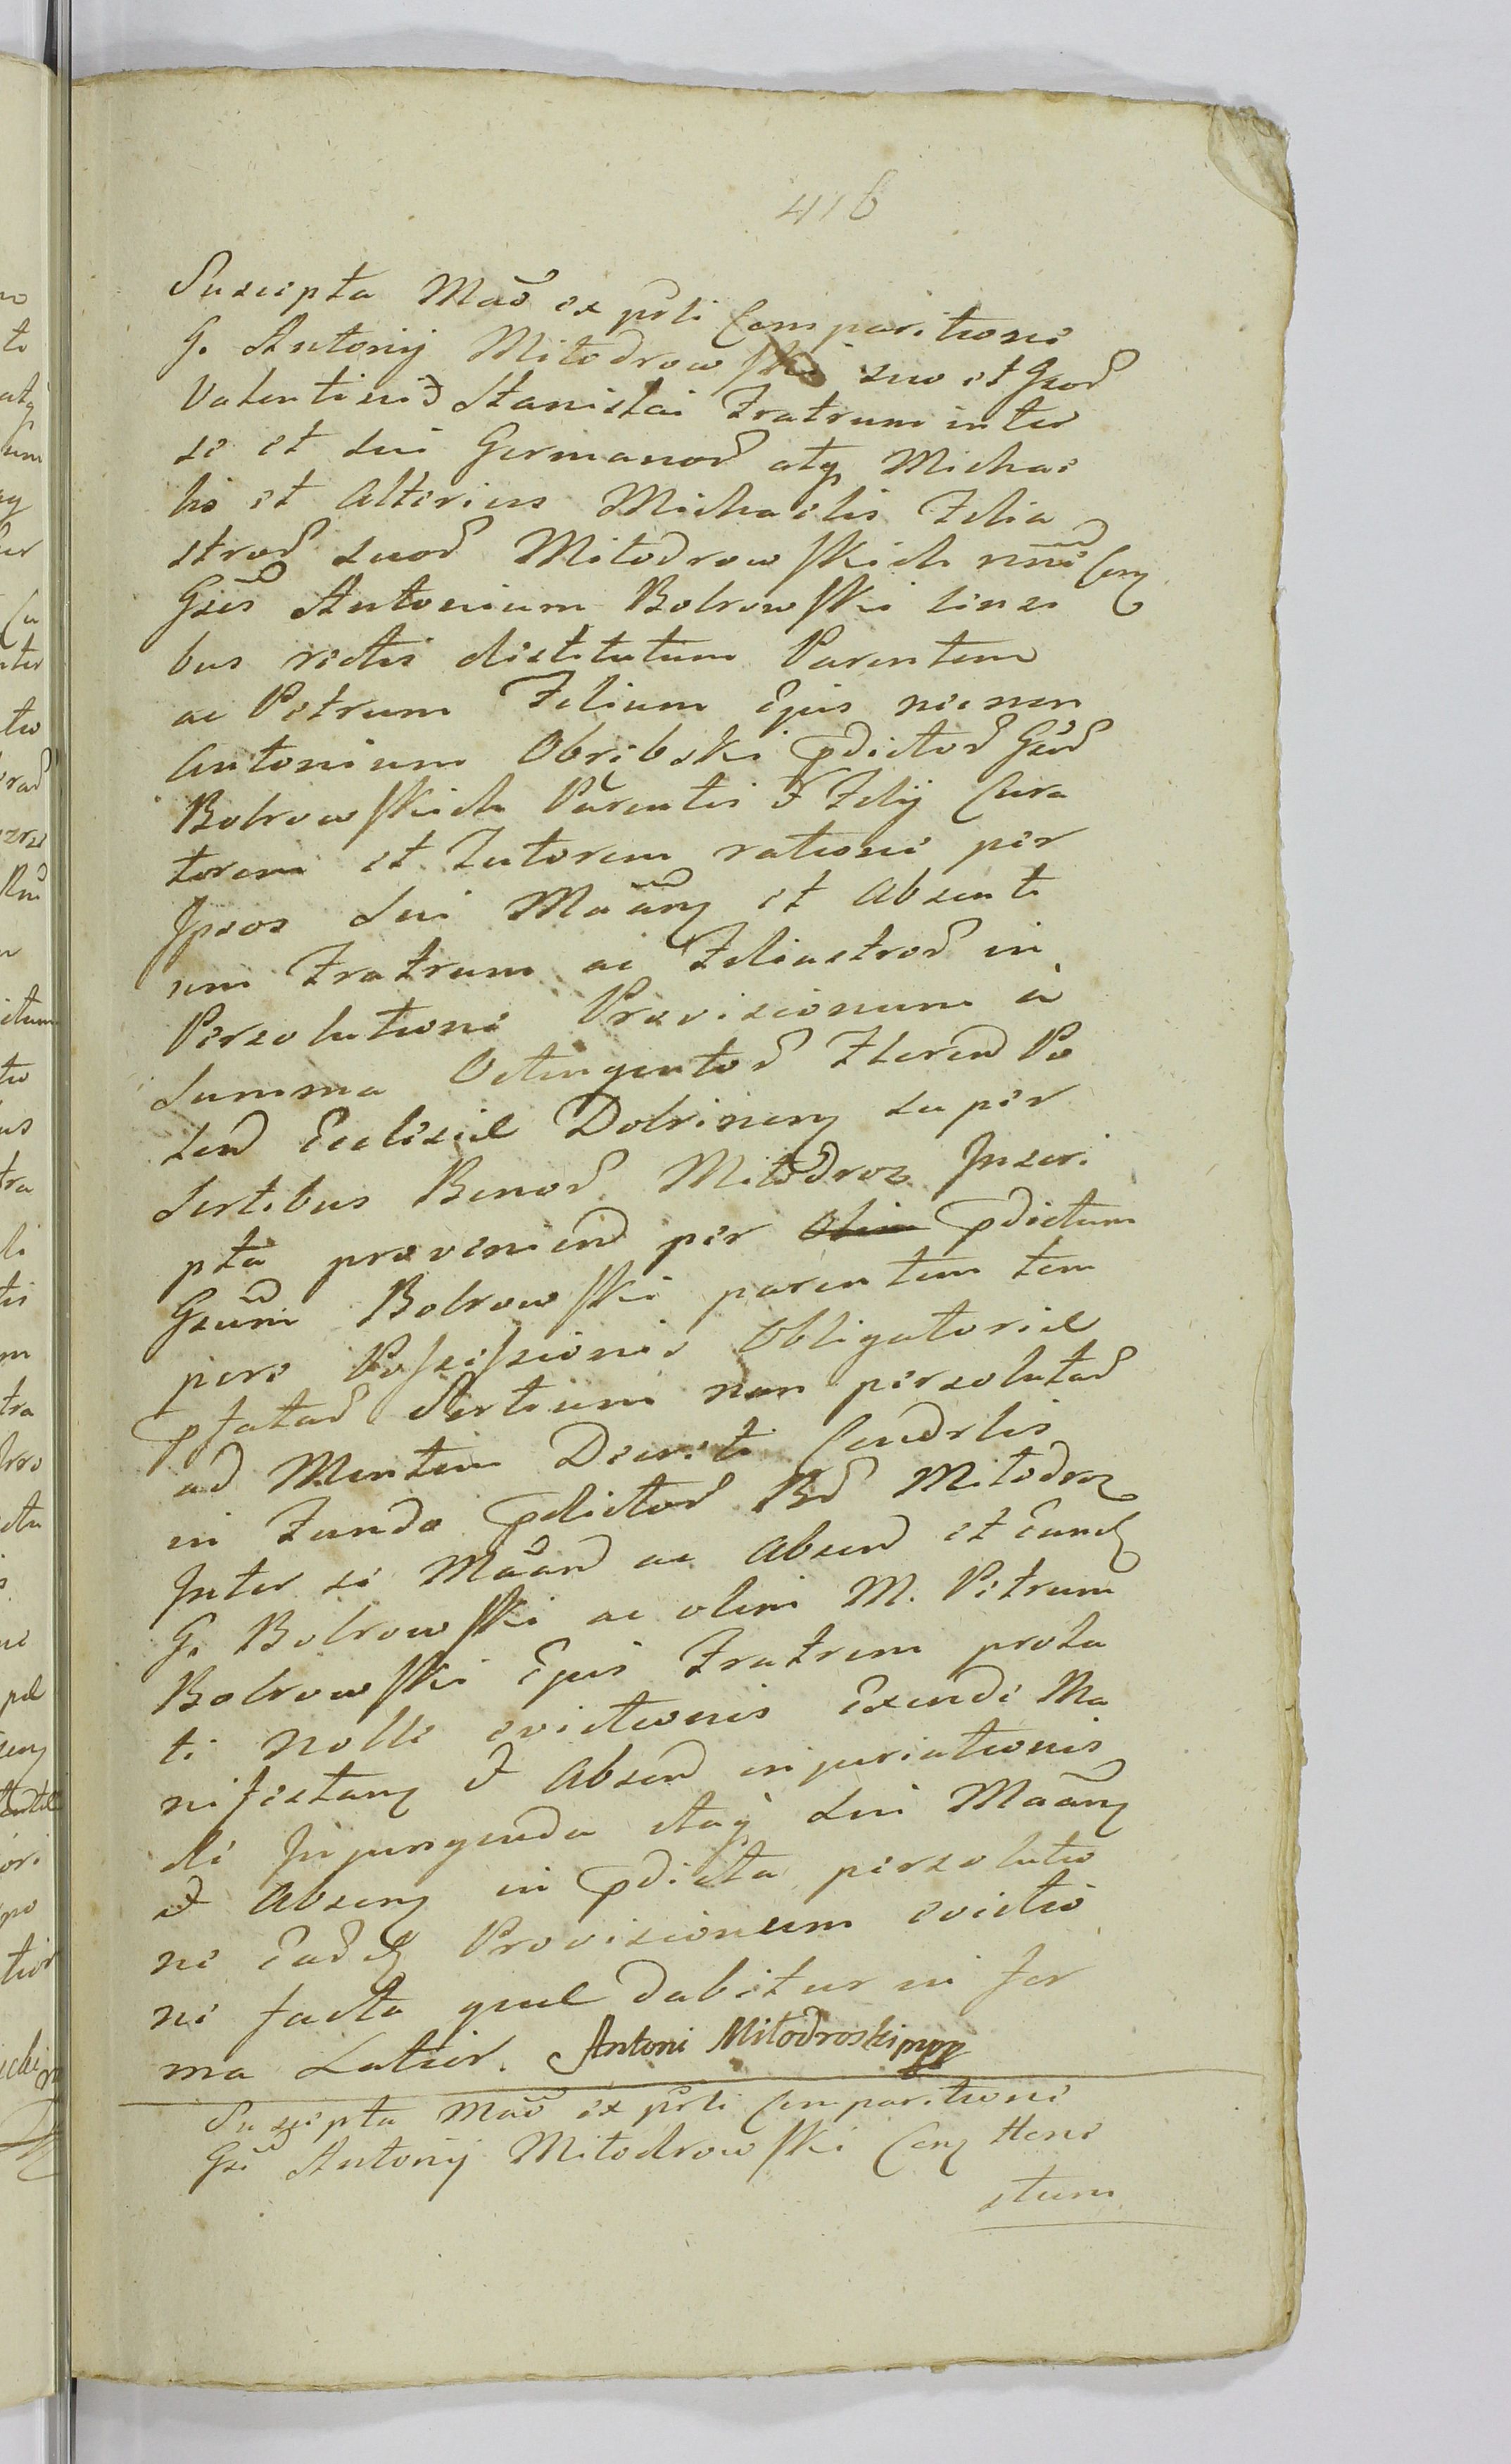 416
Suscepta Mão ex pñli Comparitione
G. Antonij Miłodrowski suo et Gsoꝝ
Valentini & Stanislai Fratrum inter
se et sui Germanoꝝ atq Michae
lis et alterius Michaelis Filia
stroꝝ suoꝝ Miłodrowskich nnõe Con
Gsos Antonium Bobrowski sensi
bus rectis distitutum Parentem
ac Petrum Filium Ejus nec non
Antonium Obrębski pdictoꝝ Gsoꝝ
Bobrowskich Parentis & Filij Cura
torem et Tutorem ratione per
Ipsos sui Mãan et Absenti
um Fratrum ac Filiastroꝝ in
Persolutione Provisionum à
Summa Octingentoꝝ Floren Po
len Ecclesiæ Dobrinen super
Sortibus Bonoꝝ Miłodroz Inscri
pta provenien per olim pdictum
Gsum Bobrowski parentem tem
pore Possessionis Obligatoriæ
pfataꝝ Sortium non persolutaꝝ
ad Mentem Decreti Condrlis
in Fundo pdictoꝝ Bꝝ Miłodroz
Inter se Mãan ac Absen et Eund
G. Bobrowski ac olim M. Petrum
Bobrowski Ejus Fratrem prola
ti nolle evictionis Exinde Ma
nifestan & Absen injuriationis
di Injungenda itaq sui Mãan
& Absen in pdicta persolutio
ne Eaꝝd Provisionum evictio
ne facta quæ dabitur in for
ma Latior. Antoni Miłodroski mpp
Suscepta Mão ex pñli Comparitione
Gsi Antonij Miłodrowski Con Hone
stum